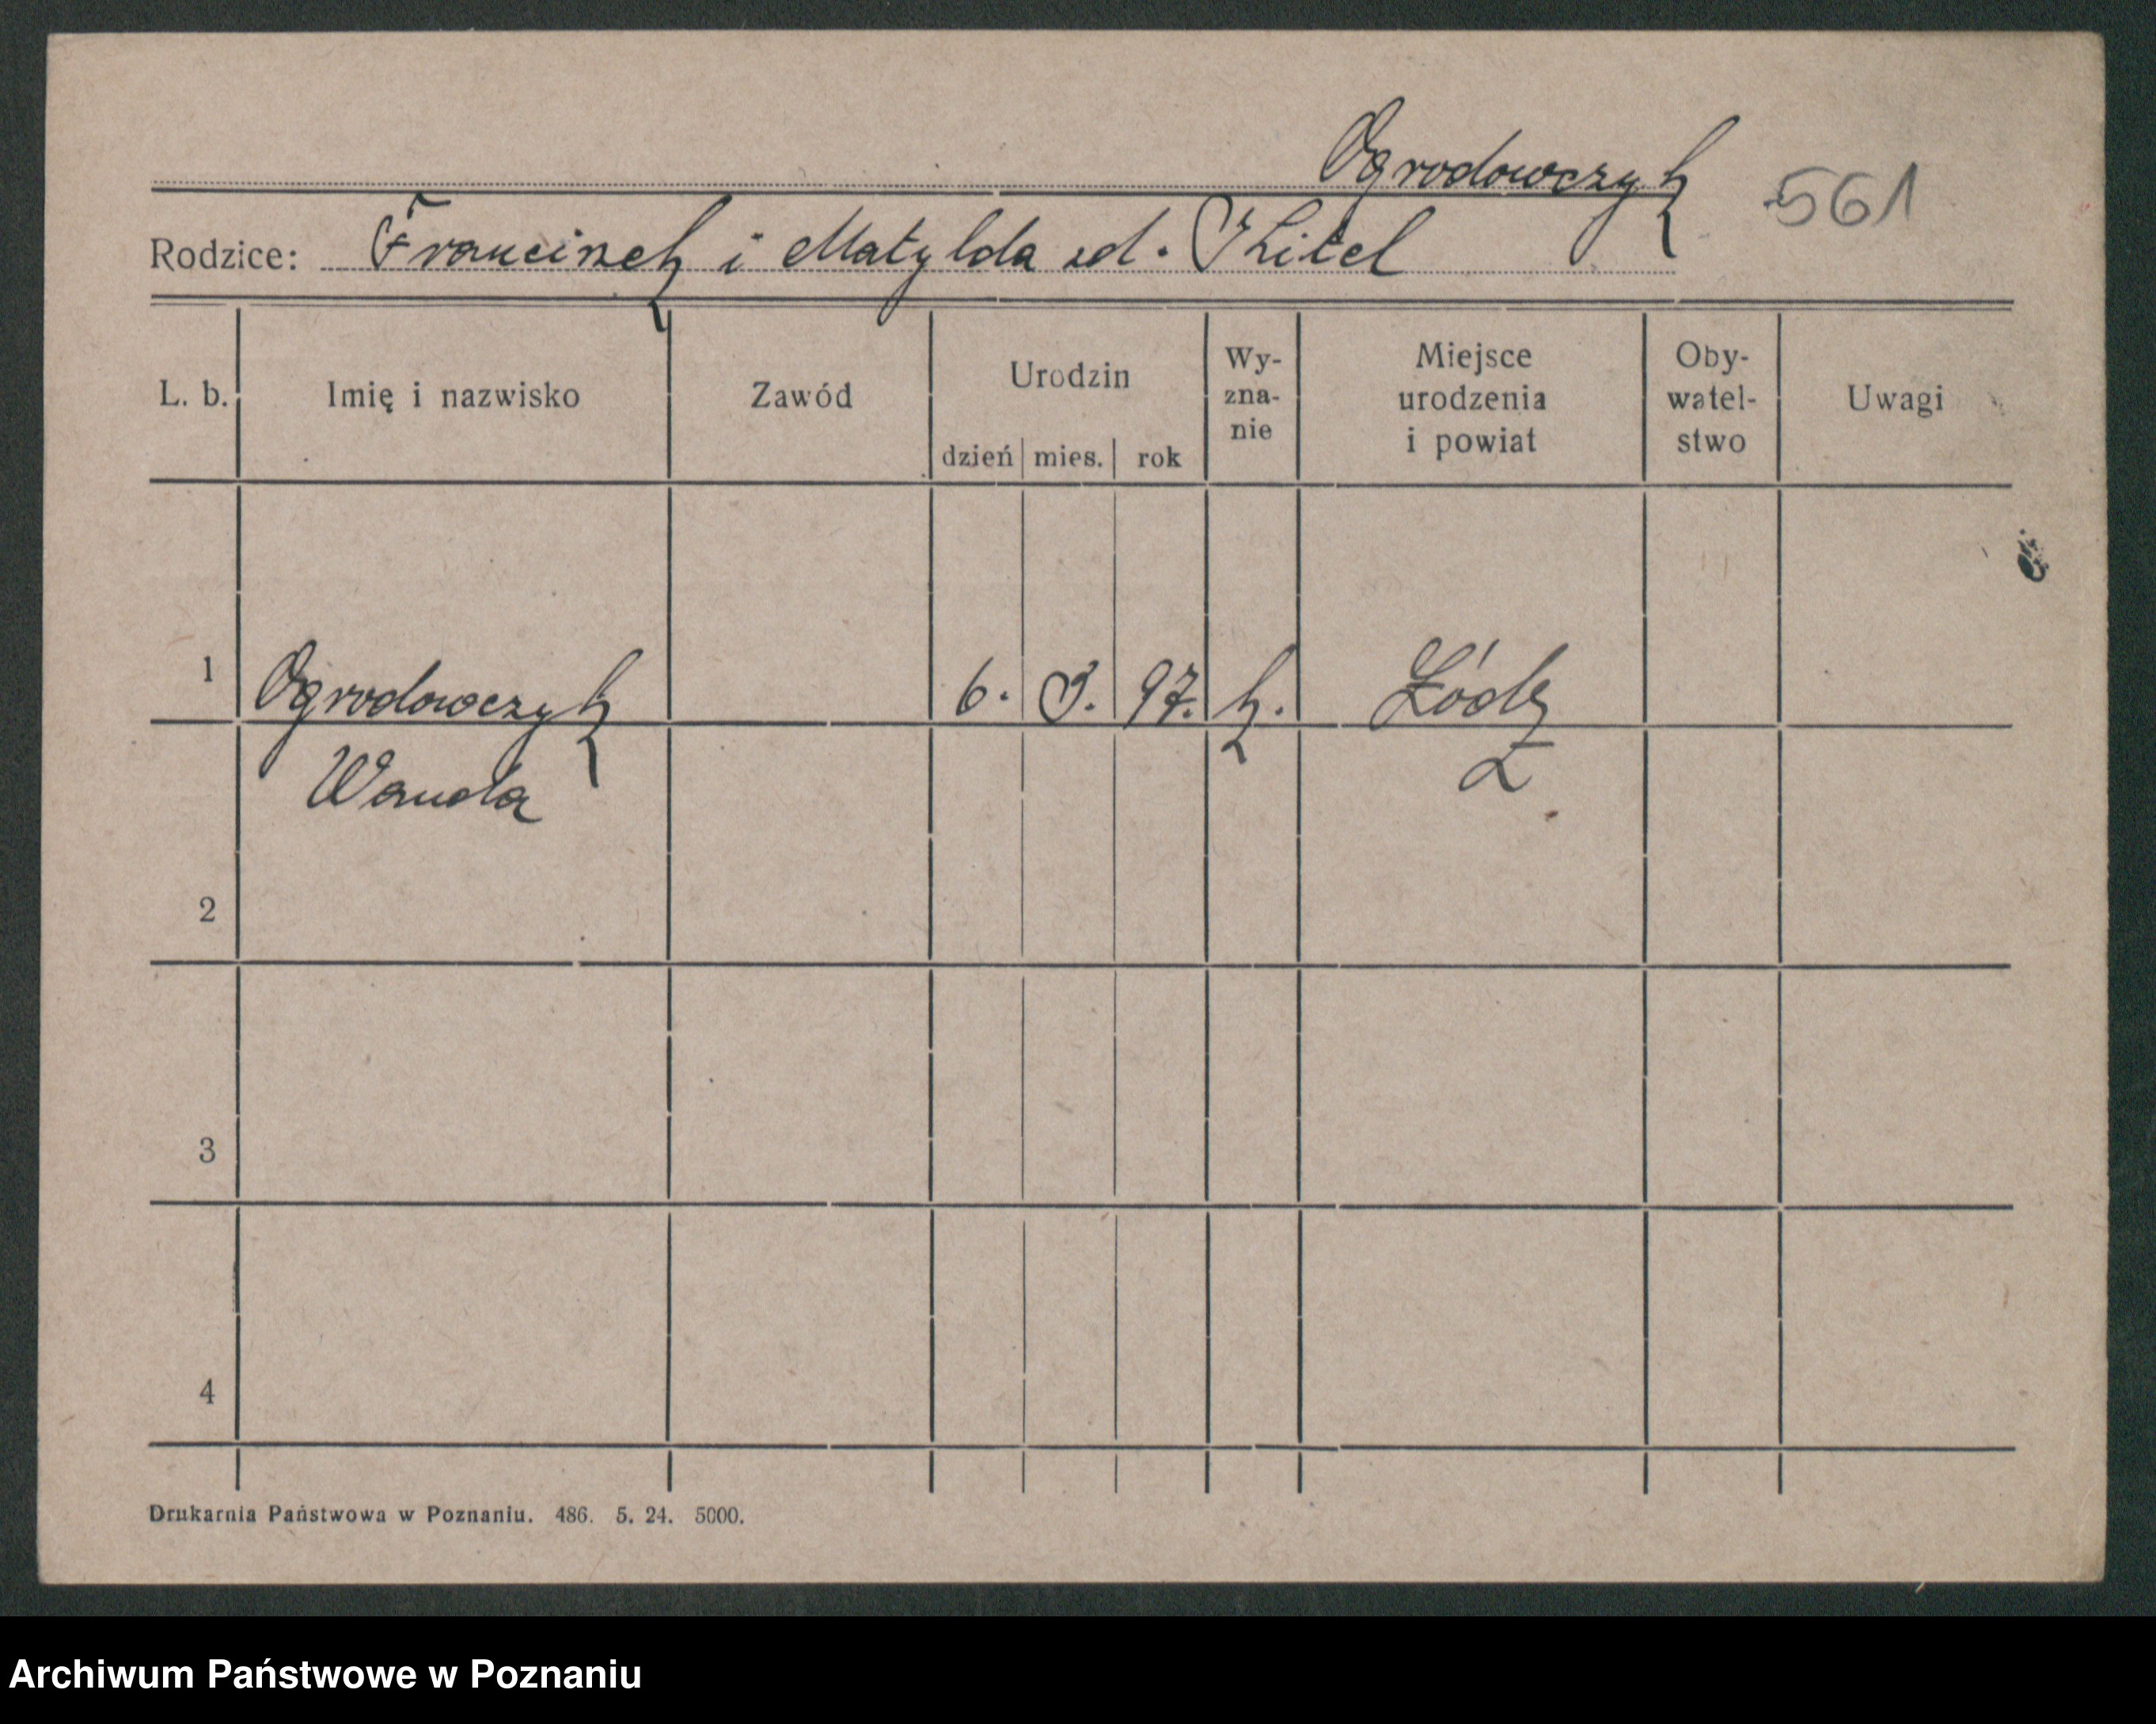 Ogrodowczyk
561
Rodzice: Franciszek i Matylda
L. b. Imię i nazwisko Zawód Urodzin dzień mies. rok Wy-zna-nie Miejsce urodzenia i powiat Oby-watel-stwo Uwagi
1 Ogrodowczyk 6. 97. k. Łódź
Wanda
2
3
4
Drukarnia Państwowa w Poznaniu. 486. 5. 24. 5000.
Archiwum Państwowe w Poznaniu